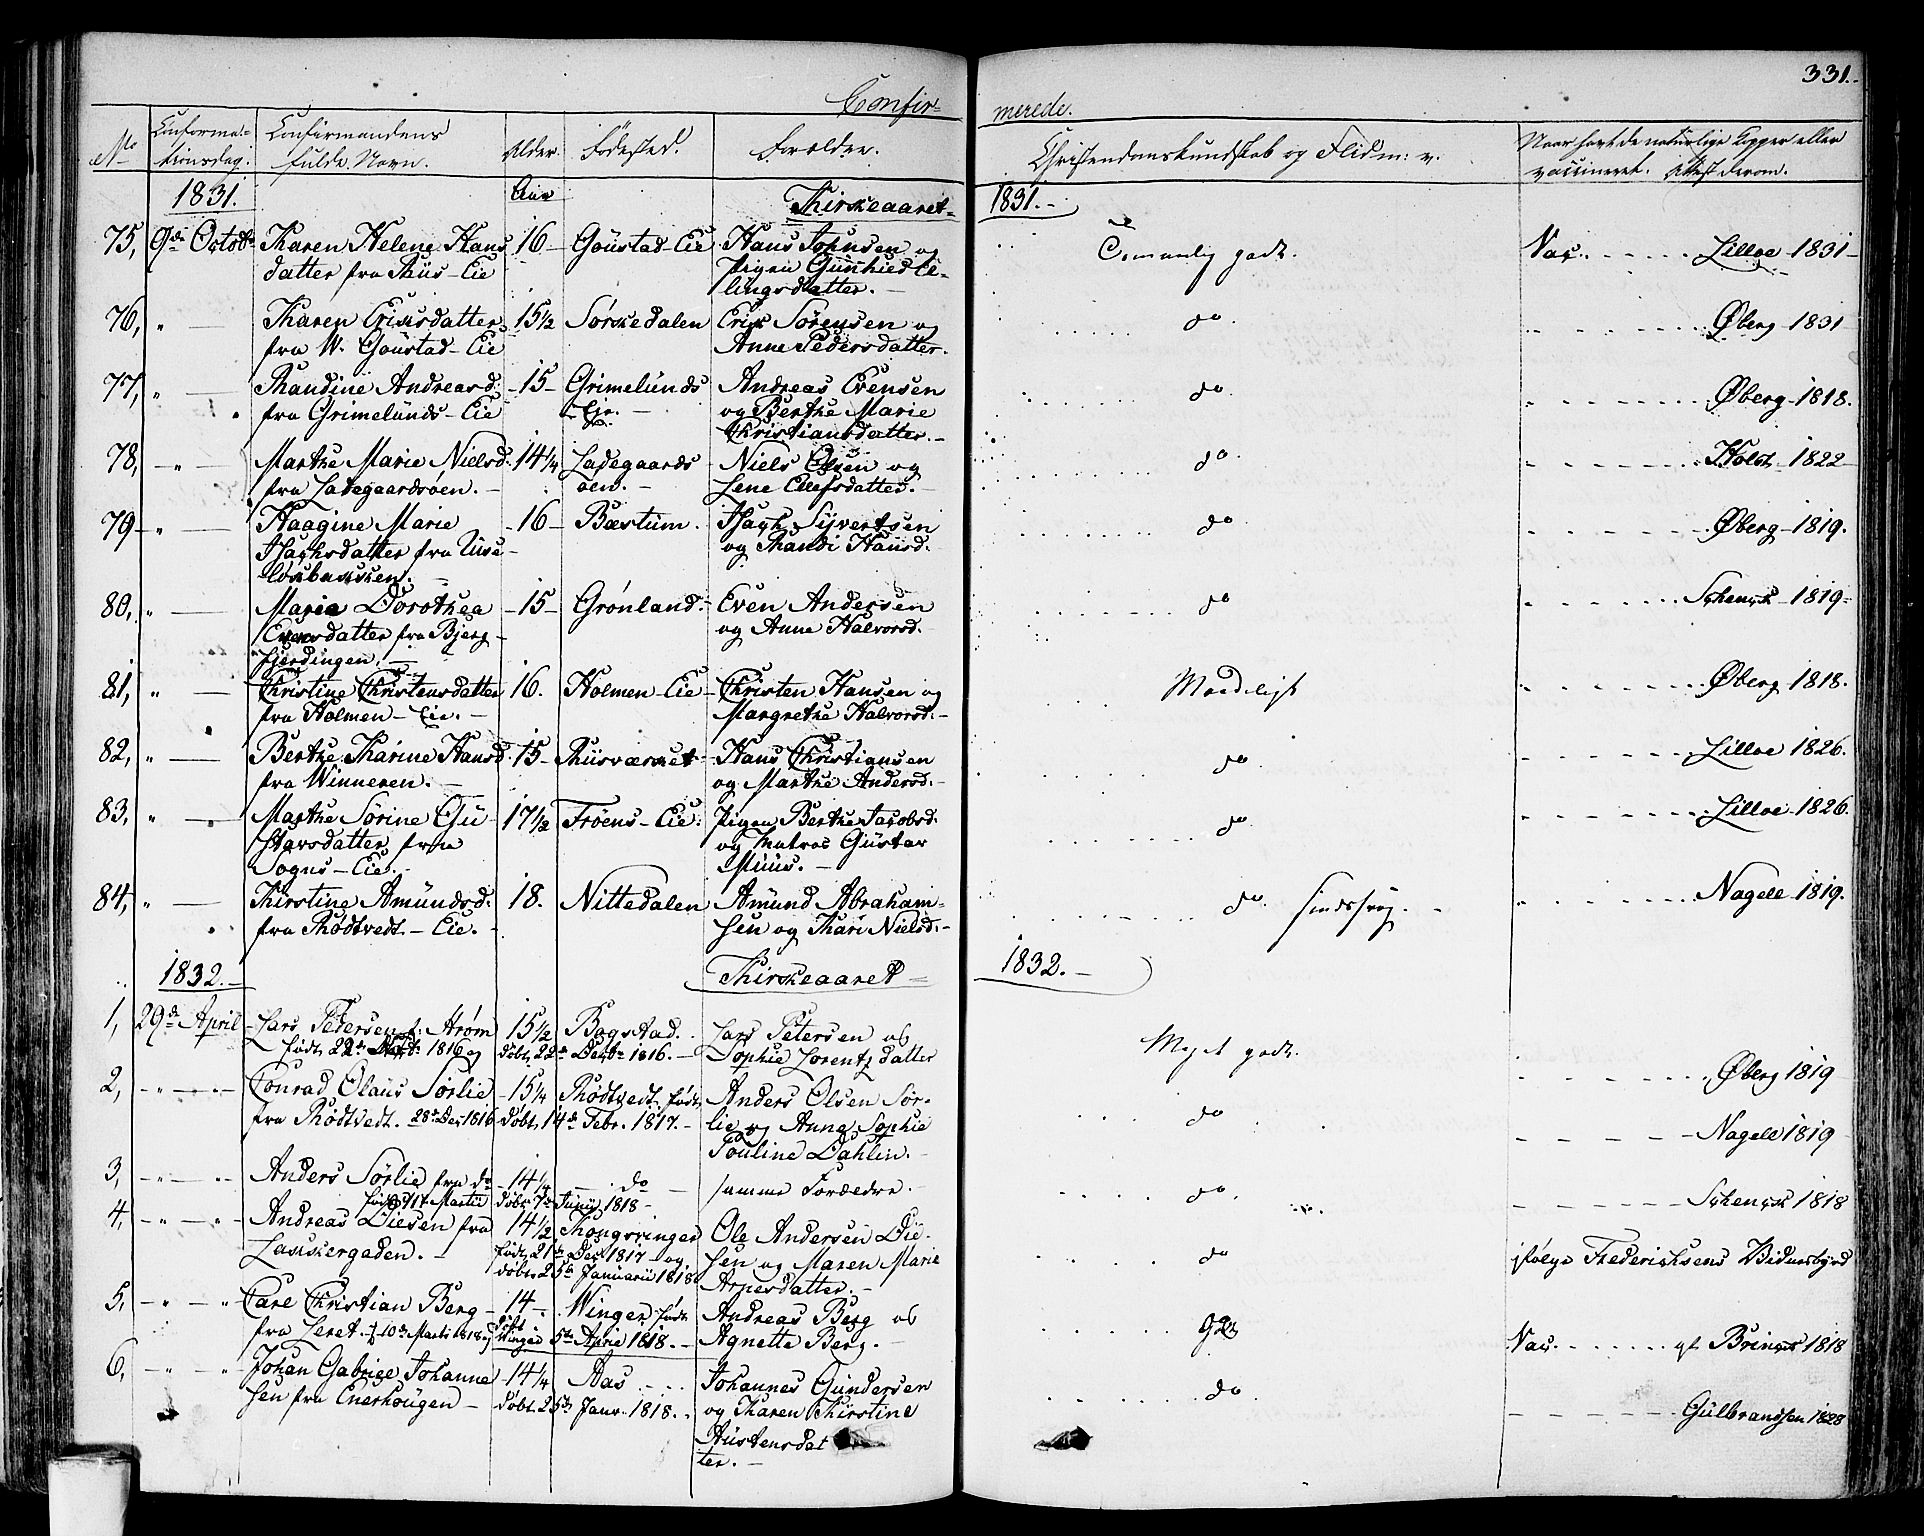 331.
Confir-
merede.
No
Confirma-
tionsdag.
Confirmandens
fulde Navn.
Alder.
Födested.
Forældre.
Christendomskundskab og Flid m: v.
Naar havt de naturlige Kopper eller
vaccineret. Attest derom.
1831.
Aar
Kirkeaaret
1831.
75, 9de Octob. Karen Helene Hans 16 Goustad-Eie Hans Johnsen og Temmelig godt. Vac. Lilloe 1831
datter fra Riis-Eie Pigen Gunhild El-
lingsdatter.
76, " Karen Ericsdatter 15½ Sørkedalen Erik Sörensen og do. Øberg 1831
fra W. Goustad-Eie Anne Pedersdatter.
77, " Randine Andreasd. 15 Grimelunds Andreas Evensen do. Øberg 1818.
fra Grimelunds-Eie Eie. og Berthe Marie
Christiansdatter.
78, " Marthe Marie Nielsd. 14¼ Ladegaards Niels Olsen og do. Holst 1822
fra Ladegaardsøen. øen. Lene Ellefsdatter.
79 " Haagine Marie 16 Bæstum. Isach Syvertsen do. Øberg 1819.
Isachsdatter fra Uuse- og Randi Hansd.
løkbakken.
80, " Marie Dorothea 15 Grønland. Even Andersen do Schenck 1819
Evensdatter fra Bjerg- og Anne Halvorsd.
fjerdingen.
81, " Christine Christensdatter 16. Holmen-Eie Christen Hansen og Maadeligt Øberg 1818.
fra Holmen-Eie. Margrethe Halvorsd.
82, " Berthe Karine Hansd. 15 Riisværket Hans Christiansen do. Lilloe 1826.
fra Winneren. og Marthe Andersd.
83, " Marthe Sörine Gu 17½ Frøens-Eie. Pigen Berthe Jacobsd. do. Lilloe 1826.
stavsdatter fra og Matros Gustav
Sogns-Eie. Muus.
84, " Kirstine Amundsd. 18. Nittedalen Amund Abraham- do. sindssvag. Nagell 1819.
fra Rødtvedt-Eie. sen og Kari Nielsd.
1832.
Kirkeaaret
1832.
1, 29de April Lars Petersen f: Strøm 15½ Bogstad. Lars Petersen og Meget godt. Øberg 1819
født 22de 1816 og døbt 22de Decbr 1816. Sophie Lorentzdatter
2, " Conrad Olaus Sørlie 15¼ Rødtvedt, født Anders Olsen Sør- do Nagell 1819
fra Rødtvedt. 28de Dec 1816 Døbt 14de Febr. 1817. lie og Anna Sophie
Pouline Dahlin.
3, " Anders Sørlie fra do 14¼ do samme Forældre. do. Schenck 1818
født 11te Martii døbt 7de Junij 1818
4, " Andreas Diesen fra 14½ Kongsvinger Ole Andersen Die- do ifølge Frederichsens Vidnesbyrd
Lakkergaden. født 21de Dec 1817 og sen og Maren Marie
døbt 25de Januarii 1818. Arnesdatter.
5, " Carl Christian Berg 14 Winger, født Andreas Berg og godt Vac. af Brinch 1818
fra Leret. f 10de Marti 1818 og døbt Winger 5te April 1818. Agnette Berg.
6, " Johan Gabriel Johanne 14¼ Aas Johannes Gundersen do. Gulbrandsen 1828
sen fra Enerhougen døbt 25de Janr. 1818. og Karen Kirstine
Austensdat
ter.